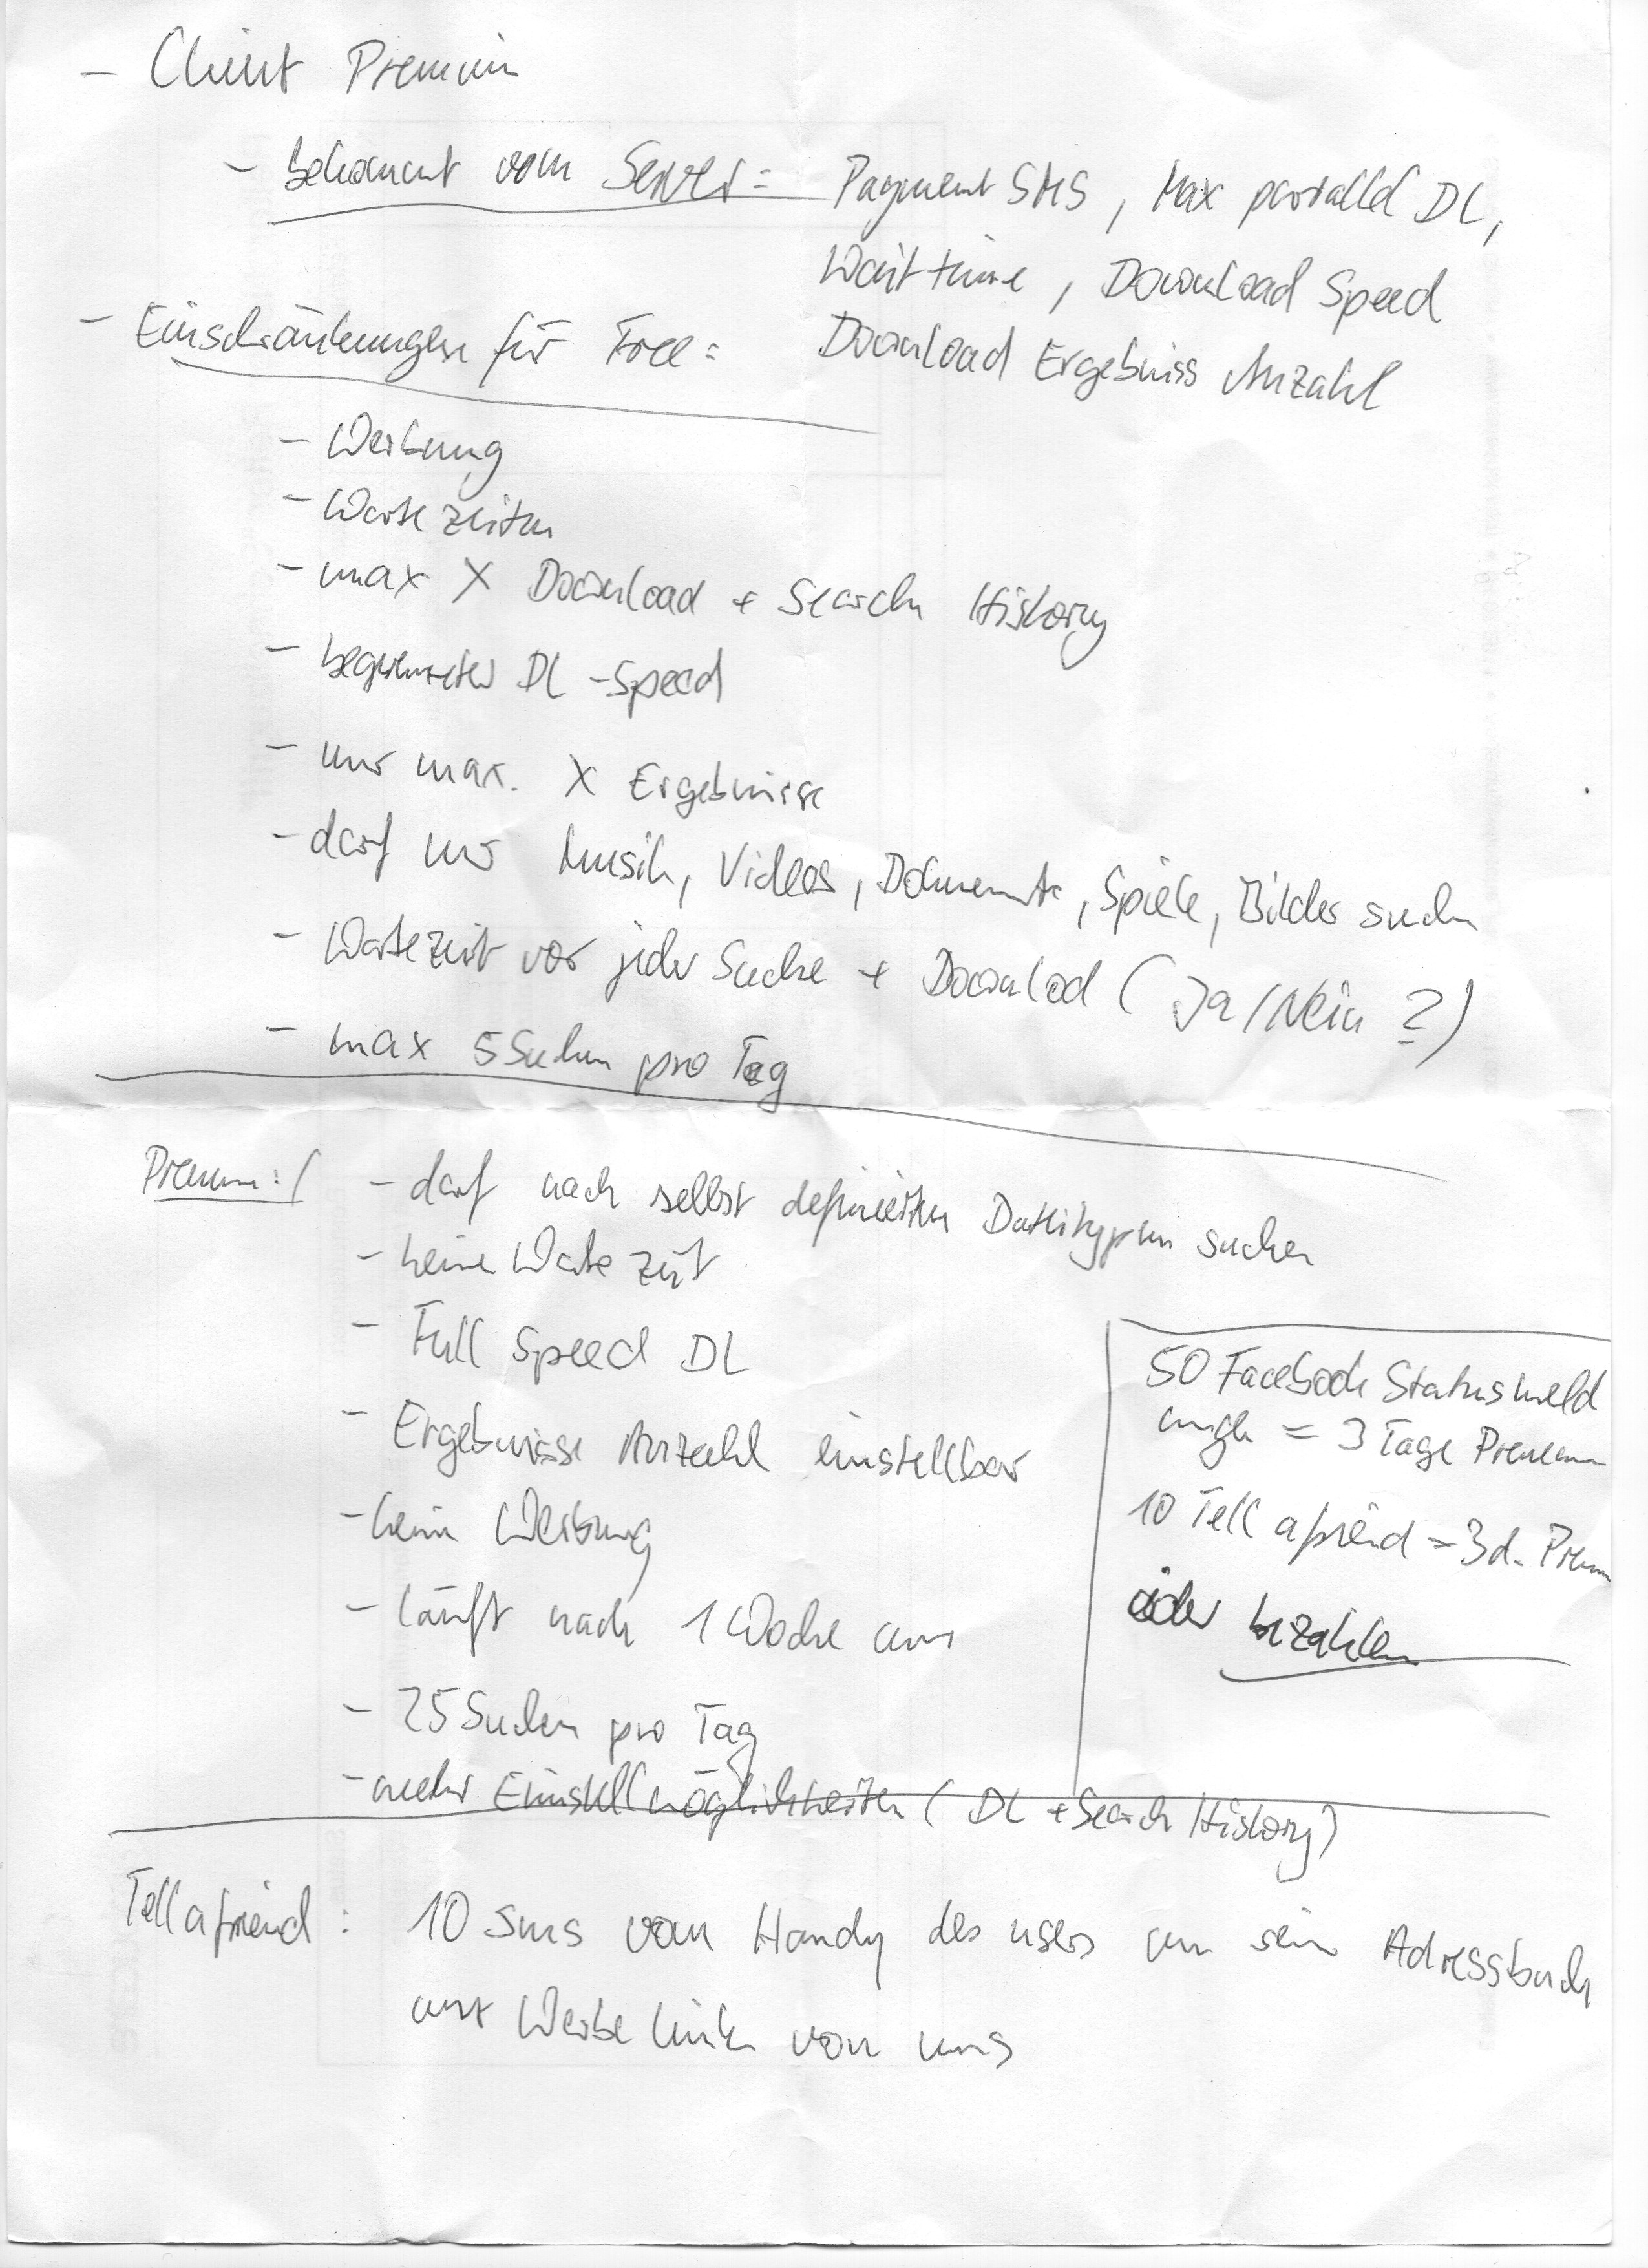 - Client Premium
- Bekommt vom Server: Payment SMS, Max parallel DL,
Wait time, Download Speed
Download Ergebniss Anzahl
- Einschränkungen für Free:
- Werbung
- Wartezeiten
- max X Download + Search History
- begrenzter DL-Speed
- nur max. X Ergebnisse
- darf nur Musik, Videos, Dokumente, Spiele, Bilder suchen
- Wartezeit vor jeder Suche + Downlod (Ja/Nein ?)
- max 5 Suchen pro Tag
Premium:
- darf nach selbst definierten Dateitypen suchen
- keine Wartezeit
- Full Speed DL
- Ergebnisse Anzahl einstellbar
- keine Werbung
- läuft nach 1 Woche aus
- 25 Suchen pro Tag
- mehr Einstellmöglichkeiten (DL + Search History)
50 Facebook Statusmeld
ungen = 3 Tage Premium
10 Tell a friend = 3d. Premium
oder bezahlen
Tell a friend: 10 sms vom Handy des users an sein Adressbuch
mit Werbe link von uns